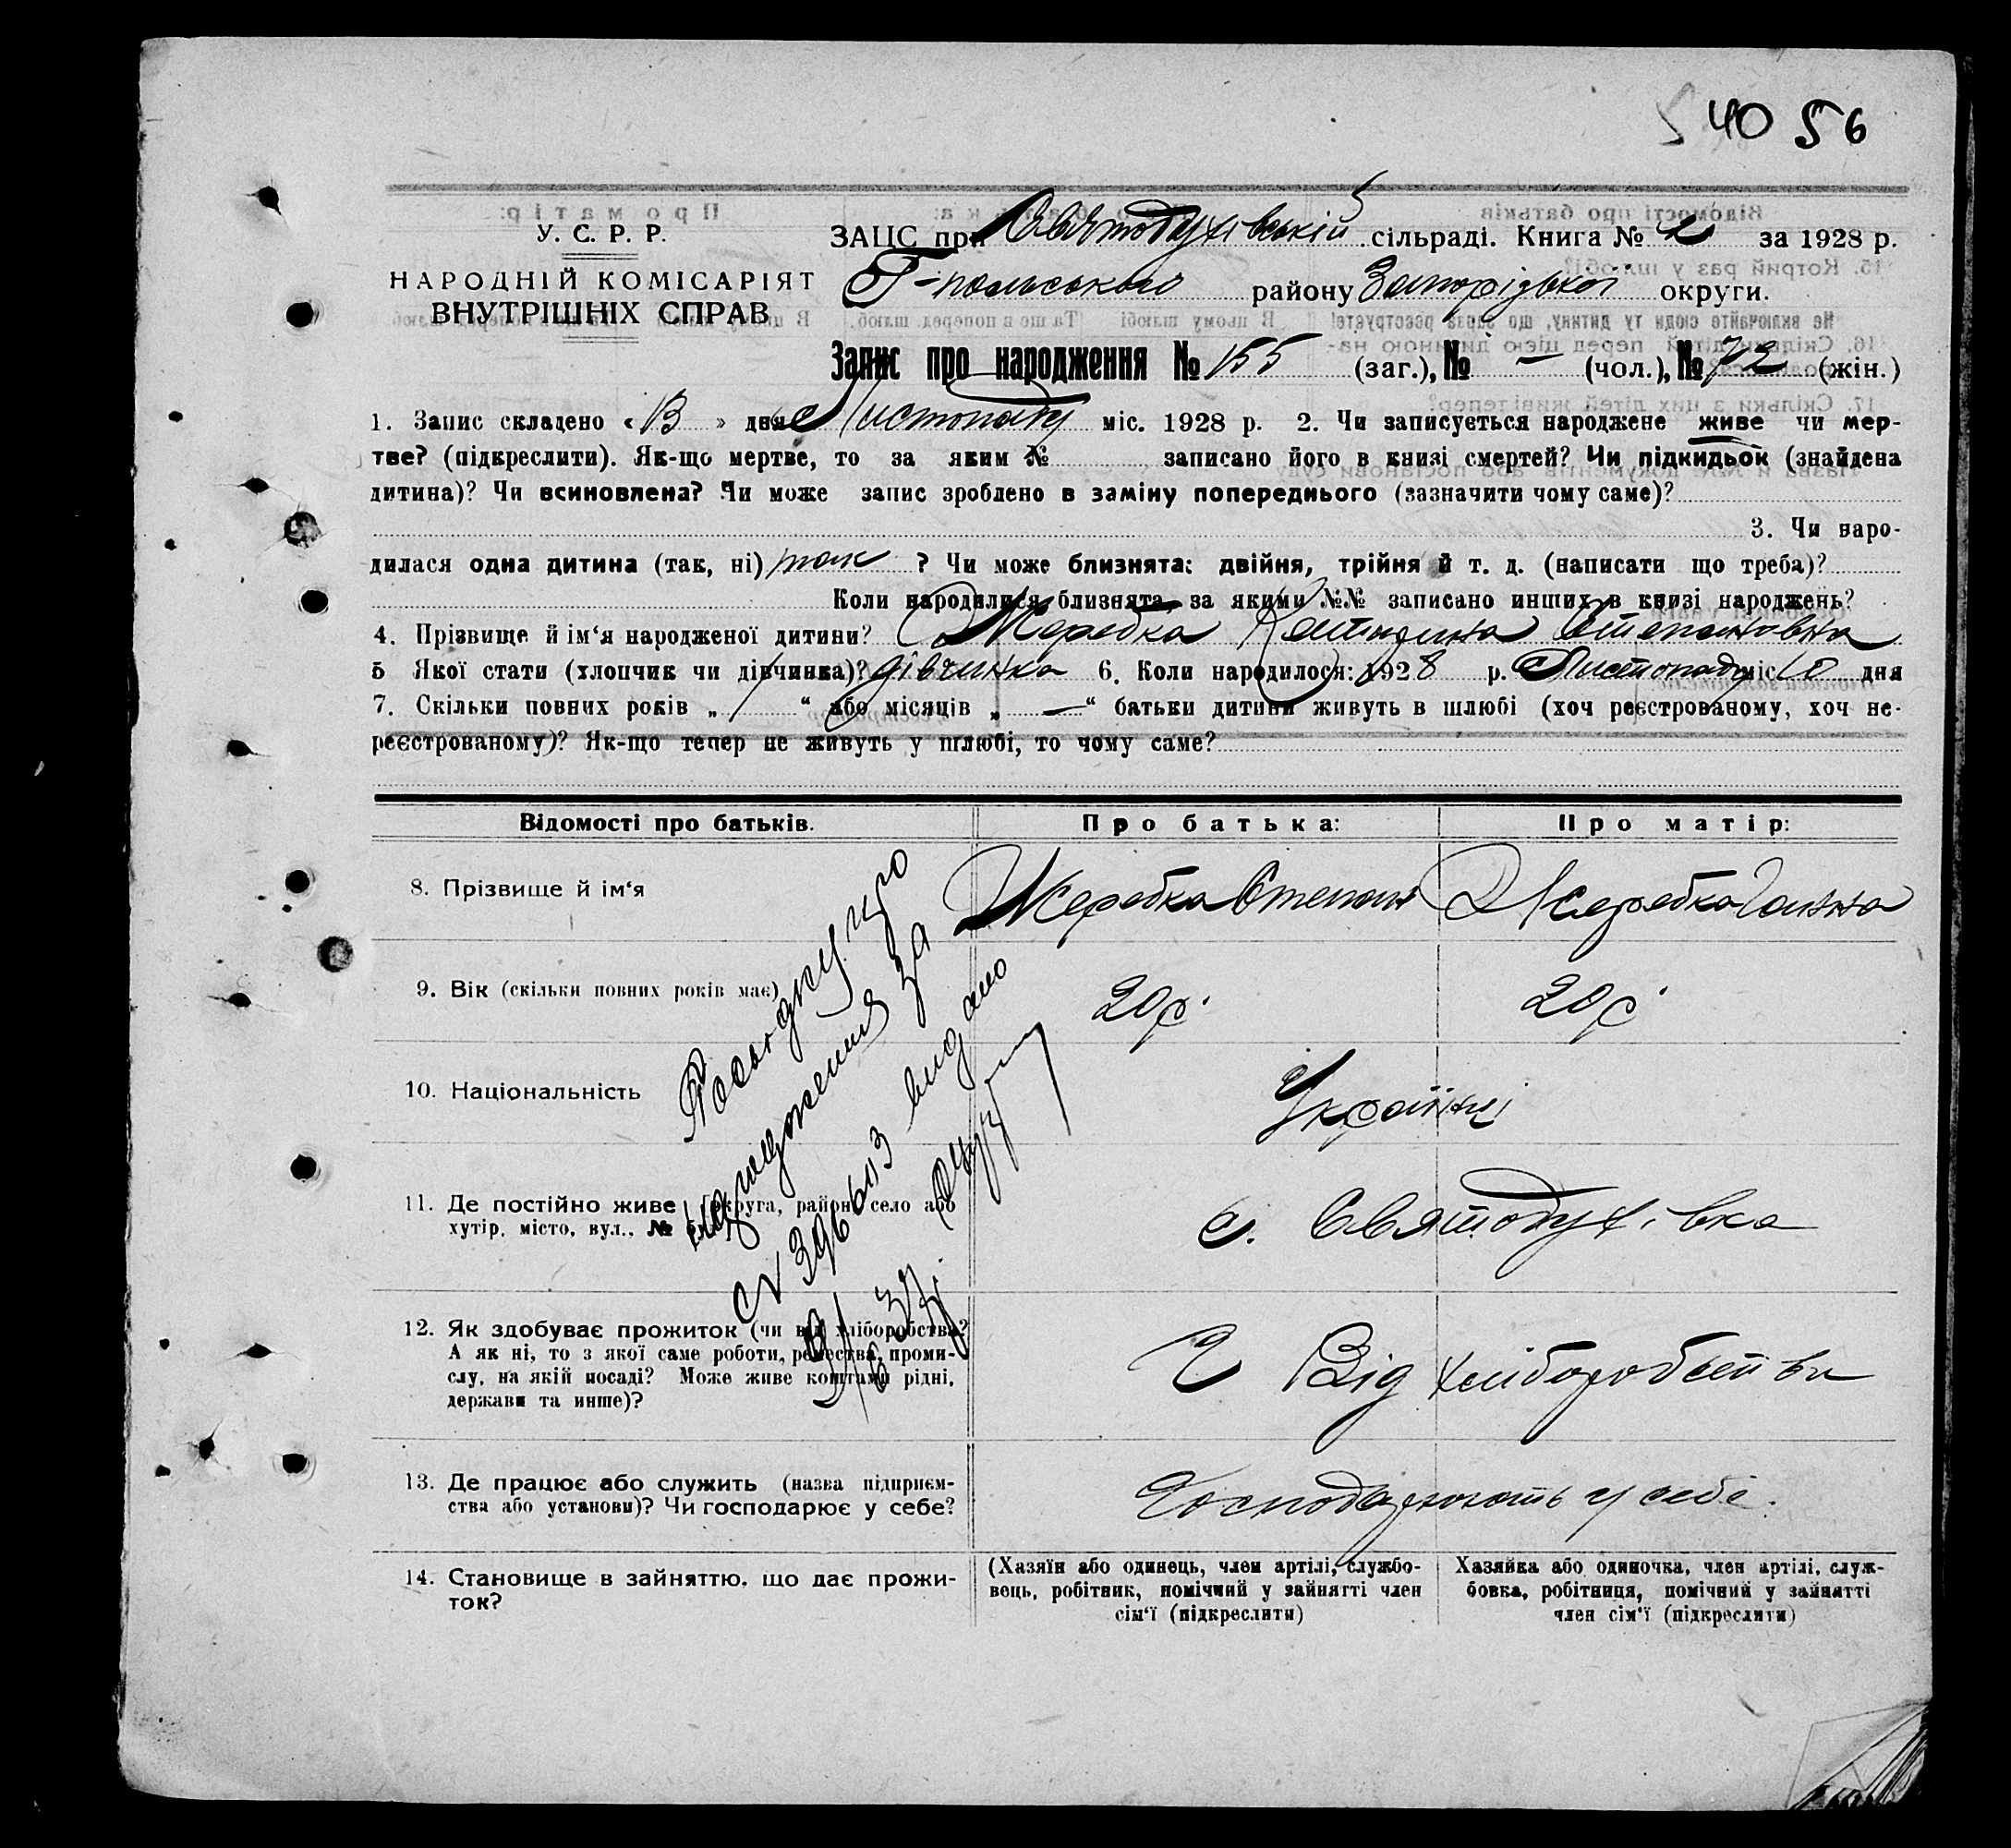 40 56
У. С. Р. Р.
НАРОДНІЙ КОМІСАРІЯТ
ВНУТРІШНІХ СПРАВ
ЗАЦС при Святодухівській сільраді. Книга № 2 за 1928 р.
Т-польського району Запорізької округи.
Запис про народження № 155 (заг.), № — (чол.), № 72 (жін.)
1. Запис складено « 13 » дня Листопаду міс. 1928 р. 2. Чи записується народжене живе чи мер-
тве? (підкреслити). Як-що мертве, то за яким № записано його в книзі смертей? Чи підкидьок (знайдена
дитина)? Чи всиновлена? Чи може запис зроблено в заміну попереднього (зазначити чому саме)?
3. Чи наро-
дилася одна дитина (так, ні) так ? Чи може близнята: двійня, трійня й т. д. (написати що треба)?
Коли народилися близнята, за якими №№ записано инших в книзі народжень?
4. Прізвище й ім‘я народженої дитини? Жеребка Катерина Степановна
5 Якої стати (хлопчик чи дівчинка)? дівчинка 6. Коли народилося: 1928 р. Листопаду міс 10 дня
7. Скільки повних років „ 1 “ або місяців „ — “ батьки дитини живуть в шлюбі (хоч реєстрованому, хоч не-
реєстрованому)? Як-що тепер не живуть у шлюбі, то чому саме?
Відомості про батьків. Про батька: Про матір:
8. Прізвище й ім‘я Жеребка Степан Жеребка Ганна
9. Вік (скільки повних років має) 20 р. 20 р.
10. Національність Українці
11. Де постійно живе (округа, район, село або
хутір, місто, вул., № буд.) с. Святодухівка
12. Як здобуває прожиток (чи від хліборобства?
А як ні, то з якої саме роботи, ремества, проми-
слу, на якій посаді? Може живе коштами рідні,
держави та инше)? Від хліборобства
13. Де працює або служить (назва підприєм-
ства або установи)? Чи господарює у себе? Господарюють у себе.
14. Становище в зайняттю, що дає прожи-
ток?
(Хазяїн або одинець, член артілі, службо-
вець, робітник, помічний у зайнятті член
сім‘ї (підкреслити)
Хазяйка або одиночка, член артілі, служ-
бовка, робітниця, помічний у зайнятті
член сім‘ї (підкреслити)
про
народження за
396613 видано